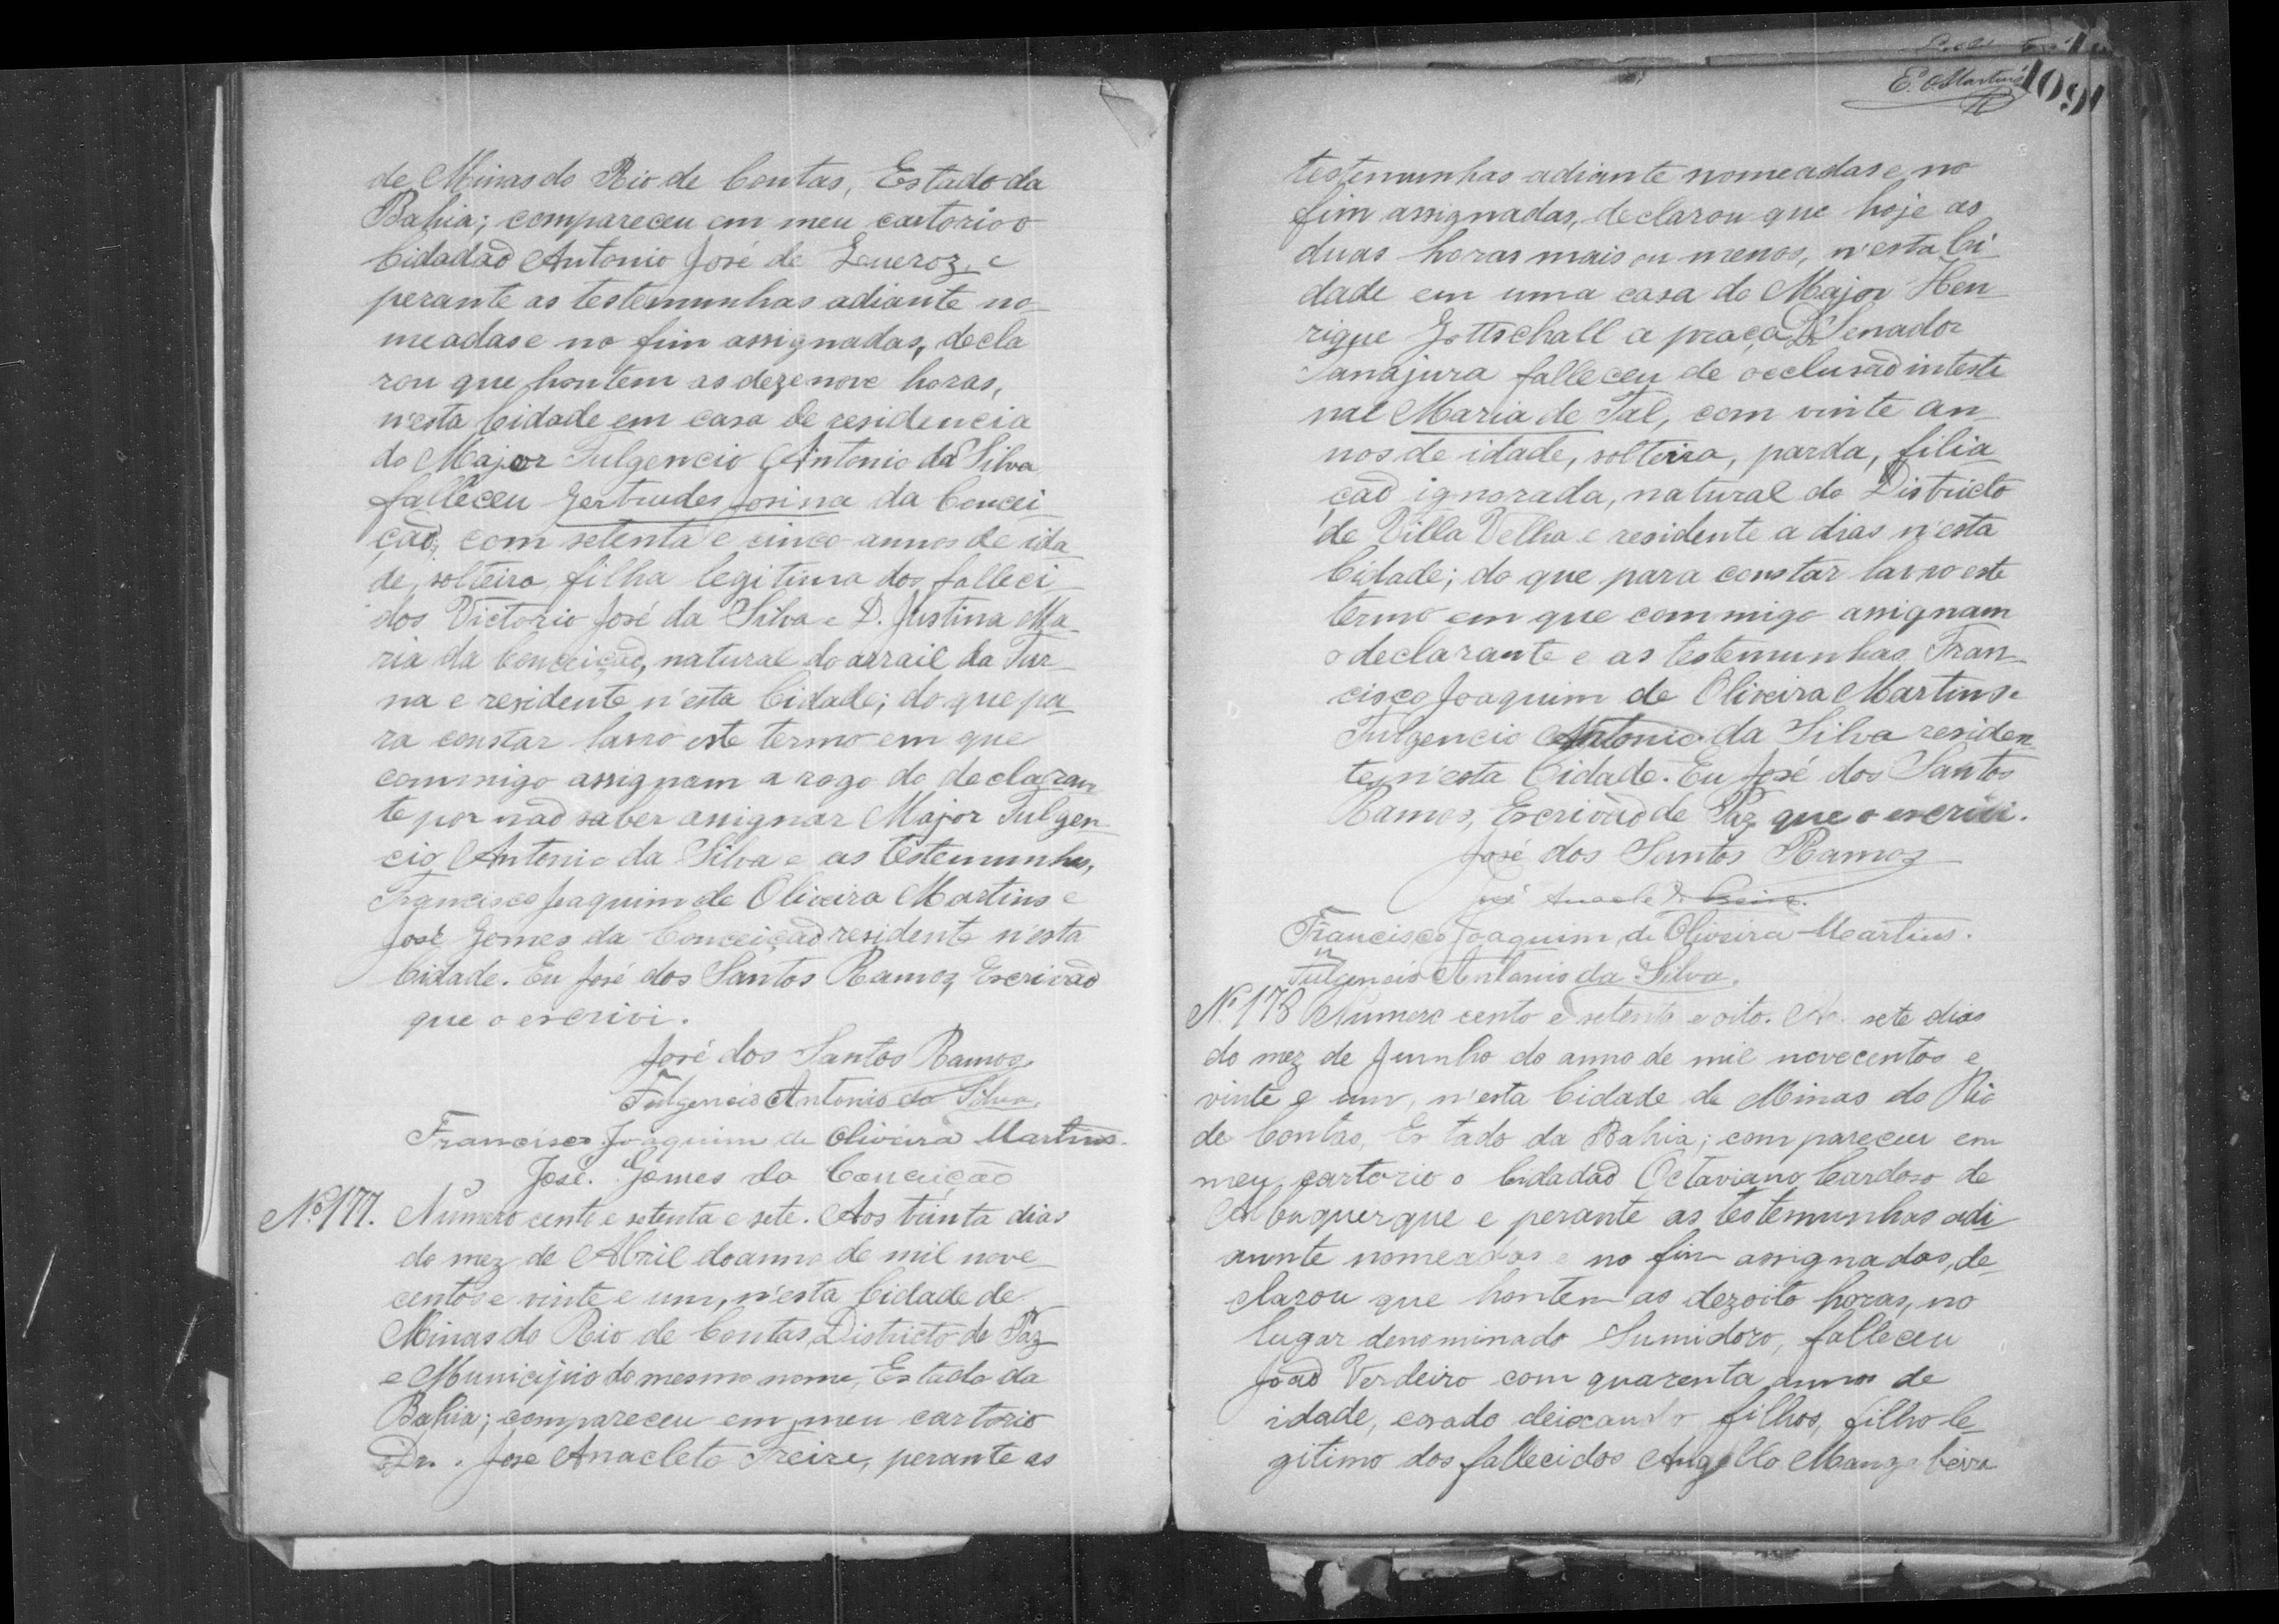 de Minas do Rio de Contas, Estado da
Bahia; compareceu em meu cartorio o
Cidadão Antonio José de Queroz e
perante as testemunhas adiante no-
meadas e no fim assignadas, decla
rou que hontem as dezenove horas,
n'esta Cidade em casa de residencia
do Major Fulgencio Antonio da Silva
falleceu Gertrudes Josina da Concei-
ção, com setenta e cinco annos de ida-
de, solteira, filha legitima dos falleci-
dos Victorio José da Silva e D. Justina Ma-
ria da Conceição, natural do arrail da Fur-
na e residente n'esta Cidade; do que pa-
ra constar lavro este termo em que
commigo assignam a rogo do declaran-
te por não saber assignar Major Fulgen-
cio Antonio da Silva e as testemunhas,
Francisco Joaquim de Oliveira Martins e
José Gomes da Conceição residente n'esta
Cidade. Eu José dos Santos Ramos, Escrivão
que o escrivi.
José dos Santos Ramos
Fulgencio Antonio da Silva
Francisco Joaquim de Oliveira Martins.
José. Gomes da Conceição
Nº 177. Numero cento e setenta e sete. Aos trinta dias
do mez de Abril do anno de mil nove-
centos e vinte e um, n'esta Cidade de
Minas do Rio de Contas, Districto de Paz
e Municipio do mesmo nome, Estado da
Bahia; compareceu em meu cartorio
Dr. José Anacleto Freire, perante as
E. Martins
109
testemunhas adiante nomeadas e no
fim assignadas, declarou que hoje as
duas horas mais ou menos, n'esta Ci-
dade em uma casa do Major Hen-
rique Gottschall a praça Senador
Tanajura falleceu de occlusão intesti
nal Maria de Tal, com vinte an-
nos de idade, solteira, parda, filia-
ção ignorada, natural do Districto
de Villa Velha e residente a dias n'esta
Cidade; do que para constar lavro este
termo em que commigo assignam
o declarante e as testemunhas Fran-
cisco Joaquim de Oliveira Martins e
Fulgencio Antonio da Silva residen-
tes n'esta Cidade. Eu José dos Santos
Ramos, Escrivão de Paz que o escrivi.
José dos Santos Ramos
José Anacleto Freire.
Francisco Joaquim de Oliveira Martins.
Fulgencio Antonio da Silva.
Nº 178 Numero cento e setenta e oito. Aos sete dias
do mez de Junho do anno de mil novecentos e
vinte e um, n'esta Cidade de Minas do Rio
de Contas, Estado da Bahia; compareceu em
meu cartorio o Cidadão Octaviano Cardoso de
Albuquerque e perante as testemunhas adi-
ante nomeadas e no fim assignadas, de-
clarou que hontem as dezoito horas, no
lugar denominado Sumidoro, falleceu
João Verdeiro com quarenta annos de
idade, casado deixando filhos, filho le-
gitimo dos fallecidos Angello Mangabeira